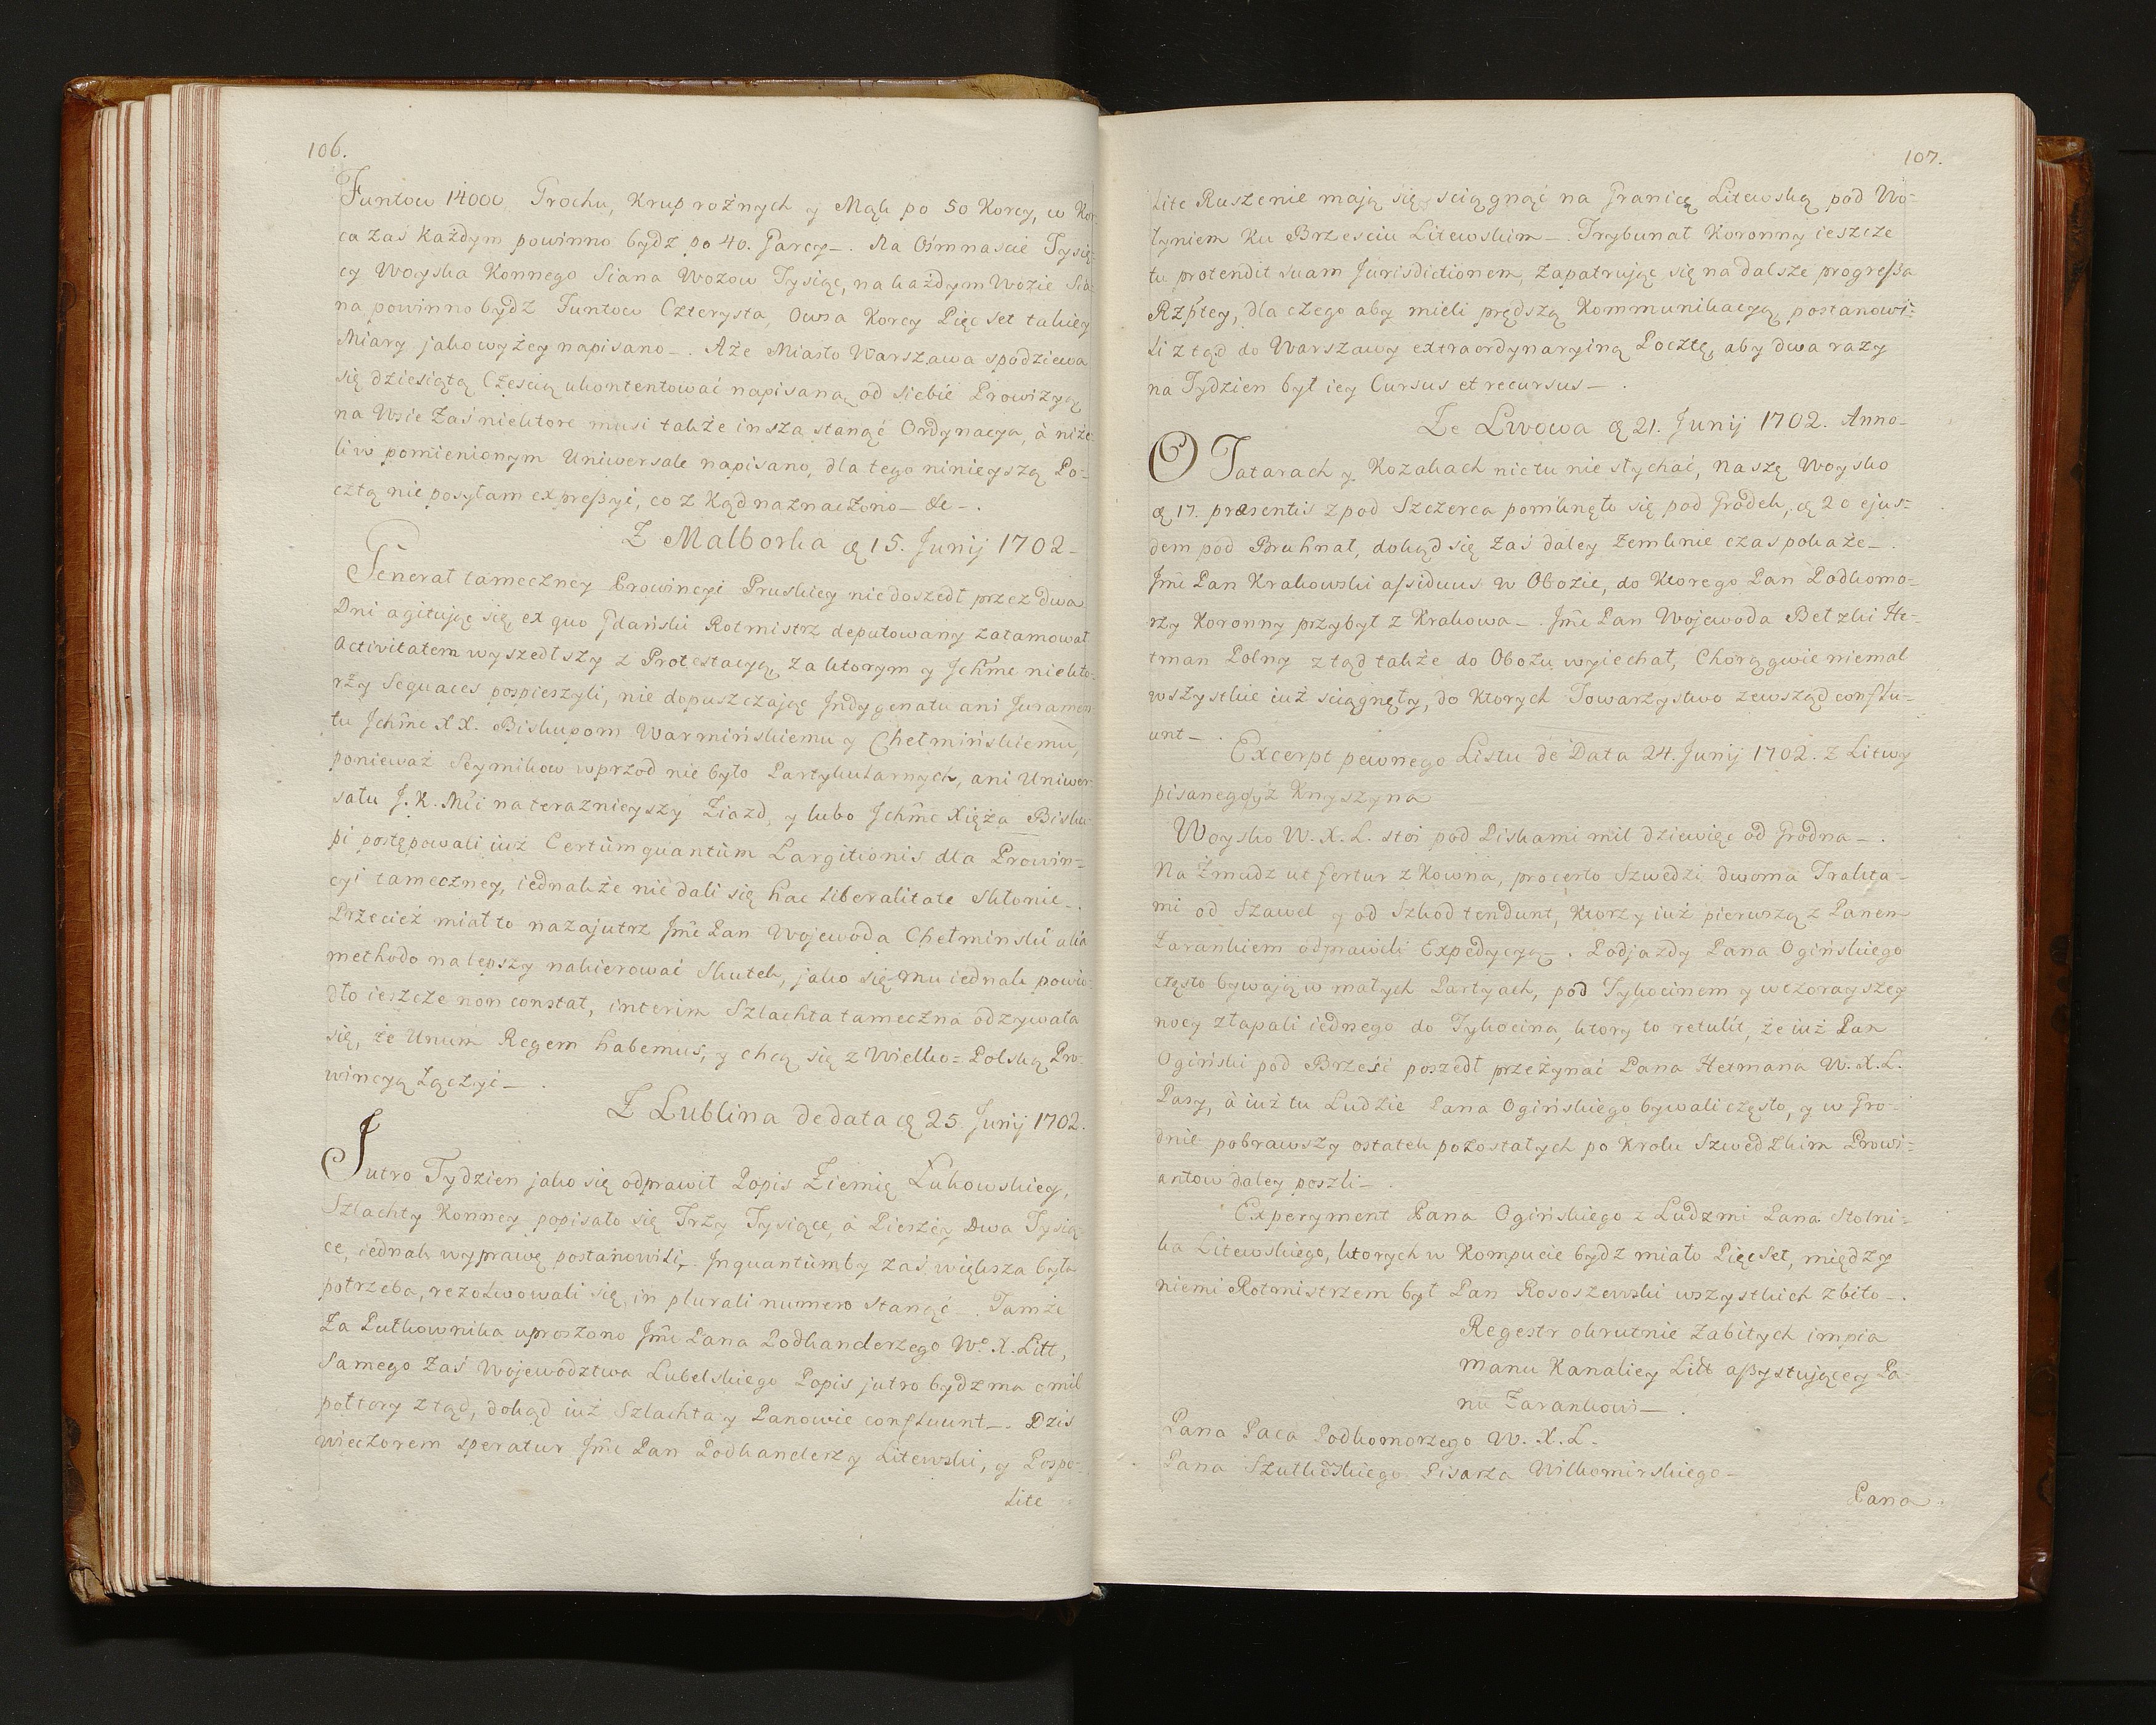 106.
Funtow 14000 Grochu, Krup rożnych y Mąk po 50 Korcy, w Kor-
ca zaś każdym powinno bydz po 40. Garcy_. Na Ośmnaście Tysię-
cy Woyska Konnego Siana Wozow Tysiąc, na każdym Wozie Sia-
na powinno bydz Funtow Czterysta, Owsa Korcy Pięc set takiey
Miary jako wyżey napisano_. Aże Miasto Warszawa spodziewa
się dziesiątą Częscią ukontentować napisaną od siebie Prowizyą
na Wsie Zaś niektore musi także insza stanąć Ordynacya, à niże-
li w pomienionym Uniwersale napisano, dla tego ninieyszą Po-
cztą nie posyłam expressyi, co z kąd naznaczono_ &c_.
Z Malborka ꝗ 15. Junij 1702_
Generał tameczney Prowincyi Pruskiey nie doszedł przez dwa
Dni agitując się, ex quo Gdański Rotmistrz deputowany zatamował
Activitatem wyszedłszy z Protestacyą, za ktorym y Jchm̃c niekto-
rży Sequaces pospieszyli, nie dopuszczając Jndygenatu ani Juramen-
tu Jchm̃c XX. Biskupom Warmińskiemu y Chełmińskiemu,
ponieważ Seymikow wprzod nie było Partykularnych, ani Uniwer-
sału J.K.Mci na teraznieyszy Ziazd, y lubo Jchm̃c Xięża Bisku-
pi postępowali iuż Certùm quantùm Largitionis dla Prowin-
cyi tameczney, iednakże nie dali się hac liberalitate Skłonic_.
Przecież miał to nazajutrz Jm̃c Pan Wojewoda Chełminski aliâ
methodo na lepszy nakierować Skutek, jako się mu iednak powio-
dło ieszcze non constat, interim Szlachta tameczna odzywała
się, że Unum Regem habemus, y chcą się z Wielko=Polską Pro-
wincyą Łączyć_.
Z Lublina de data ꝗ 25. Junij 1702.
Jutro Tydzien jako się odprawił Popis Ziemię Łukowskiey,
Szlachty Konney popisało się Trzy Tysiące, à Pieszey Dwa Tysią-
ce, iednak wyprawę postanowili_. Jnquantùm by Zaś większa była
potrzeba, rezolwowali się in plurali numero stanąć_. Tamże
Za Pułkownika uproszono Jm̃c Pana Podkanderzego W. X. Litt,
Samego Zaś Wojewodztwa Lubelskiego Popis jutro bydz ma o mil
połtory ztąd, dokąd iuż Szlachta y Panowie confluunt_. Dzis
wieczorem speratur Jm̃c Pan Podkanderzy Litewski, y Pospo-
Lite
107.
Lite Ruszenie mają się sciągnąć na Granicę Litewską pod Wo-
łyniem Ku Brzesciu Litewskim_. Trybunał Koronny ieszcze
tu protendit suam Jurisdictionem, zapatrując się na dalsze progressa
Rzp̃tey, dla czego aby mieli prędszą Kommunikacyą, postanowi-
li ztąd do Warszawy extraordynaryiną Pocztę, aby dwa razy
na Tydzien był iey Cursus et recursus_.
Ze Lwowa ꝗ 21. Junij 1702. Anno_
O Tatarach y Kozakach nic tu nie słychać, naszę Woysko
ꝗ 17. præsentis zpod Szczerca pomknęło się pod Grodek, ꝗ 20 ejus-
dem pod Bruhnal, dokąd się Zaś daley Zemknie czas pokaże_.
Jm̃c Pan Krakowski assiduus w Obozie, do Ktorego Pan Podkomo-
rzy Koronny przybył z Krakowa_. Jm̃c Pan Wojewoda Bełzki He-
tman Polny ztąd także do Obozu wyiechał, Chorągwie niemal
wszystkie iuż sciągnęły, do Ktorych Towarzystwo zewsząd conflu-
unt_.
Excerpt pewnego Listu de Data 24. Junij 1702. z Litwy
pisanego, z Knyszyna
Woysko W. X. L. stoi pod Liskami mil dziewięc od Grodna_.
Na Żmudz ut fertur z Kowna, pro certo Szwedzi dwoma Trakta-
mi od Szawel y od Szkod tendunt, Ktorzy iuż pierwszą z Panem
Zarankiem odprawili Expedycyą_. Podjazdy Pana Ogińskiego
często bywają w małych Partyach, pod Tykocinem y wczorayszey
nocy złapali iednego do Tykocina, ktory to retulit, że iuż Pan
Ogiński pod Brześć poszedł przeżynać Pana Hetmana W. X. L.
Pasy, à iuż tu Ludzie Pana Ogińskiego bywali często, y w Gro-
dnie pobrawszy ostatek pozostałych po Krolu Szwedzkim Prowi-
antow daley poszli_.
Experyment Pana Ogińskiego z Ludzmi Pana Stolni-
ka Litewskiego, ktorych w Kompucie bydz miało Pięcset, między
niemi Rotmistrzem był Pan Rososzewski wszystkich zbito_.
Regestr okrutnie zabitych impia
manu Kanaliey Litt assystującey Pa-
nu Zarankowi_.
Pana Paca Podkomorzego W. X. L.
Pana Szutkoskiego Pisarza Wiłkomirskiego_
Pana